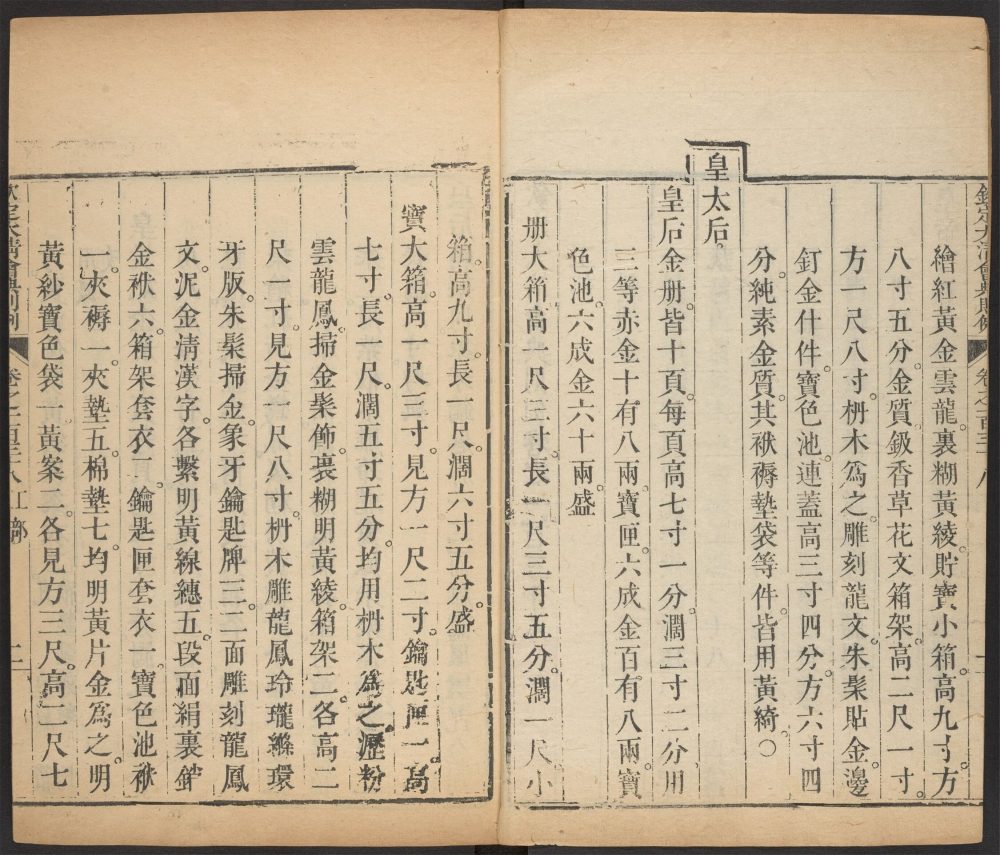 欽定大清會典則例 卷之一百三十八
繪紅黃金雲龍。裏糊黃綾。貯寶小箱。高九寸。方
八寸五分。金質鈒香草花文箱架。高二尺一寸。
方一尺八寸。枬木爲之。雕刻龍文。朱髹貼金。邊
釘金什件。寶色池。連蓋高三寸四分。方六寸四
分。純素金質。其袱褥墊袋等件。皆用黃綺。○
皇太后。
皇后金册。皆十頁。每頁高七寸一分。濶三寸二分。用
三等赤金十有八兩。寶匣。六成金百有八兩。寶
色池。六成金六十兩。盛
册大箱。高一尺三寸。長一尺三寸五分。濶一尺。小
箱。高九寸。長一尺。濶六寸五分。盛
寶大箱。高一尺三寸。見方一尺二寸。鑰匙匣一。高
七寸。長一尺。濶五寸五分。均用枬木爲之。瀝粉
雲龍鳳。掃金髹飾。裏糊明黃綾。箱架二。各高二
尺一寸。見方一尺八寸。枬木雕龍鳳玲瓏縧環
牙版。朱髹掃金。象牙鑰匙牌三。二面雕刻龍鳳
文。泥金清漢字。各繫明黃線繐五。段面絹裏銷
金袱六。箱架套衣二。鑰匙匣套衣一。寶色池袱
一。夾褥一。夾墊五。棉墊七。均明黃片金爲之。明
黃紗寶色袋一。黃案二。各見方三尺。高二尺七
欽定大清會典則例 卷之一百三十八 工部 二